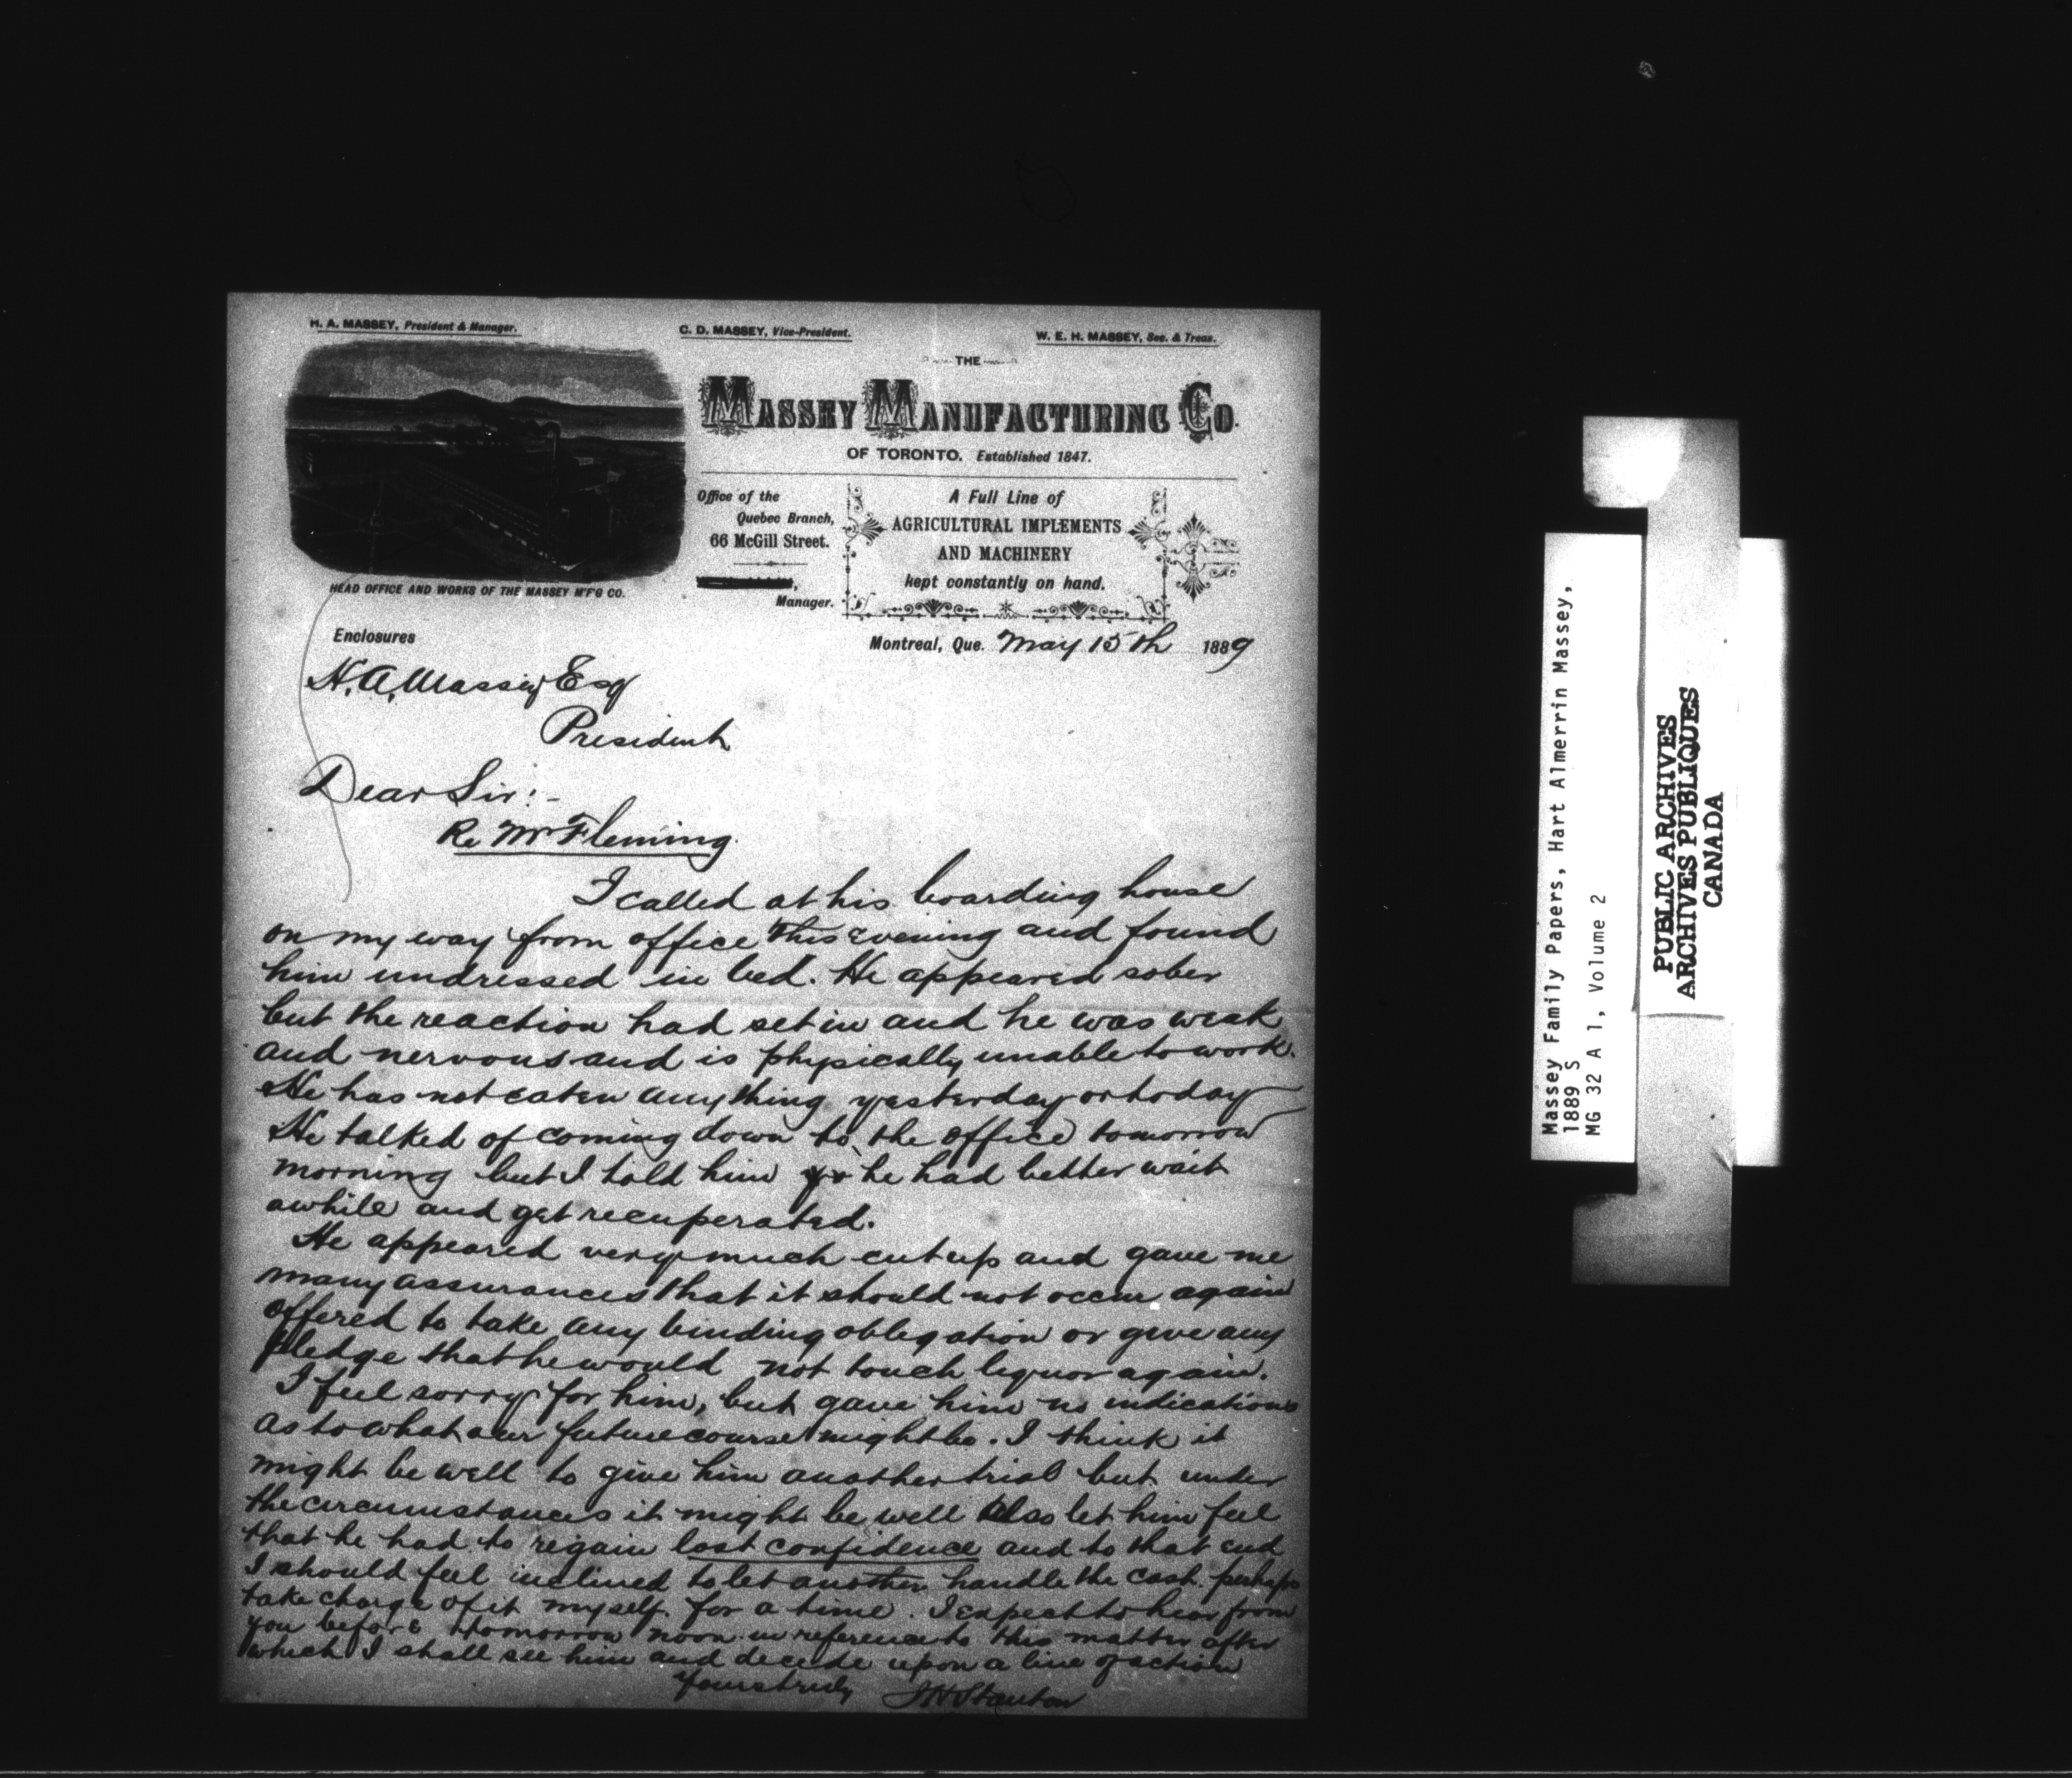 H. A. MASSEY, President & Manager.
C. D. MASSEY, Vice-President.
W. E. H. MASSEY, Sec. & Treas.
THE
MASSEY MANUFACTURING CO.
OF TORONTO. Established 1847.
Office of the
Quebec Branch,
66 McGill Street.
Manager.
A Full Line of
AGRICULTURAL IMPLEMENTS
AND MACHINERY
kept constantly on hand.
HEAD OFFICE AND WORKS OF THE MASSEY M'F'G CO.
Enclosures
Montreal, Que. May 15th 1889
H. A. Massey Esq
President
Dear Sir:-
Re Mr Fleming.
I called at his boarding house
on my way from office this evening and found
him undressed in bed. He appeared sober
but the reaction had set in and he was weak
and nervous and is physically unable to work.
He has not eaten anything yesterday or today
He talked of coming down to the office tomorrow
morning but I told him he had better wait
awhile and get recuperated.
He appeared very much cut up and gave me
many assurances that it should not occur again
offered to take any binding obligation or give any
pledge that he would not touch liquor again.
I feel sorry for him, but gave him no indications
as to what our future course might be. I think it
might be well to give him another trial but under
the circumstances it might be well also let him feel
that he had to regain lost confidence and to that end
I should feel inclined to let another handle the cash perhaps
take charge of it myself. for a time. I expect to hear from
you before tomorrow noon in reference to this matter after
which I shall see him and decide upon a line of action
Yours truly J H Stanton
Massey Family Papers, Hart Almerrin Massey,
1889 S
MG 32 A 1, Volume 2
PUBLIC ARCHIVES
ARCHIVES PUBLIQUES
CANADA